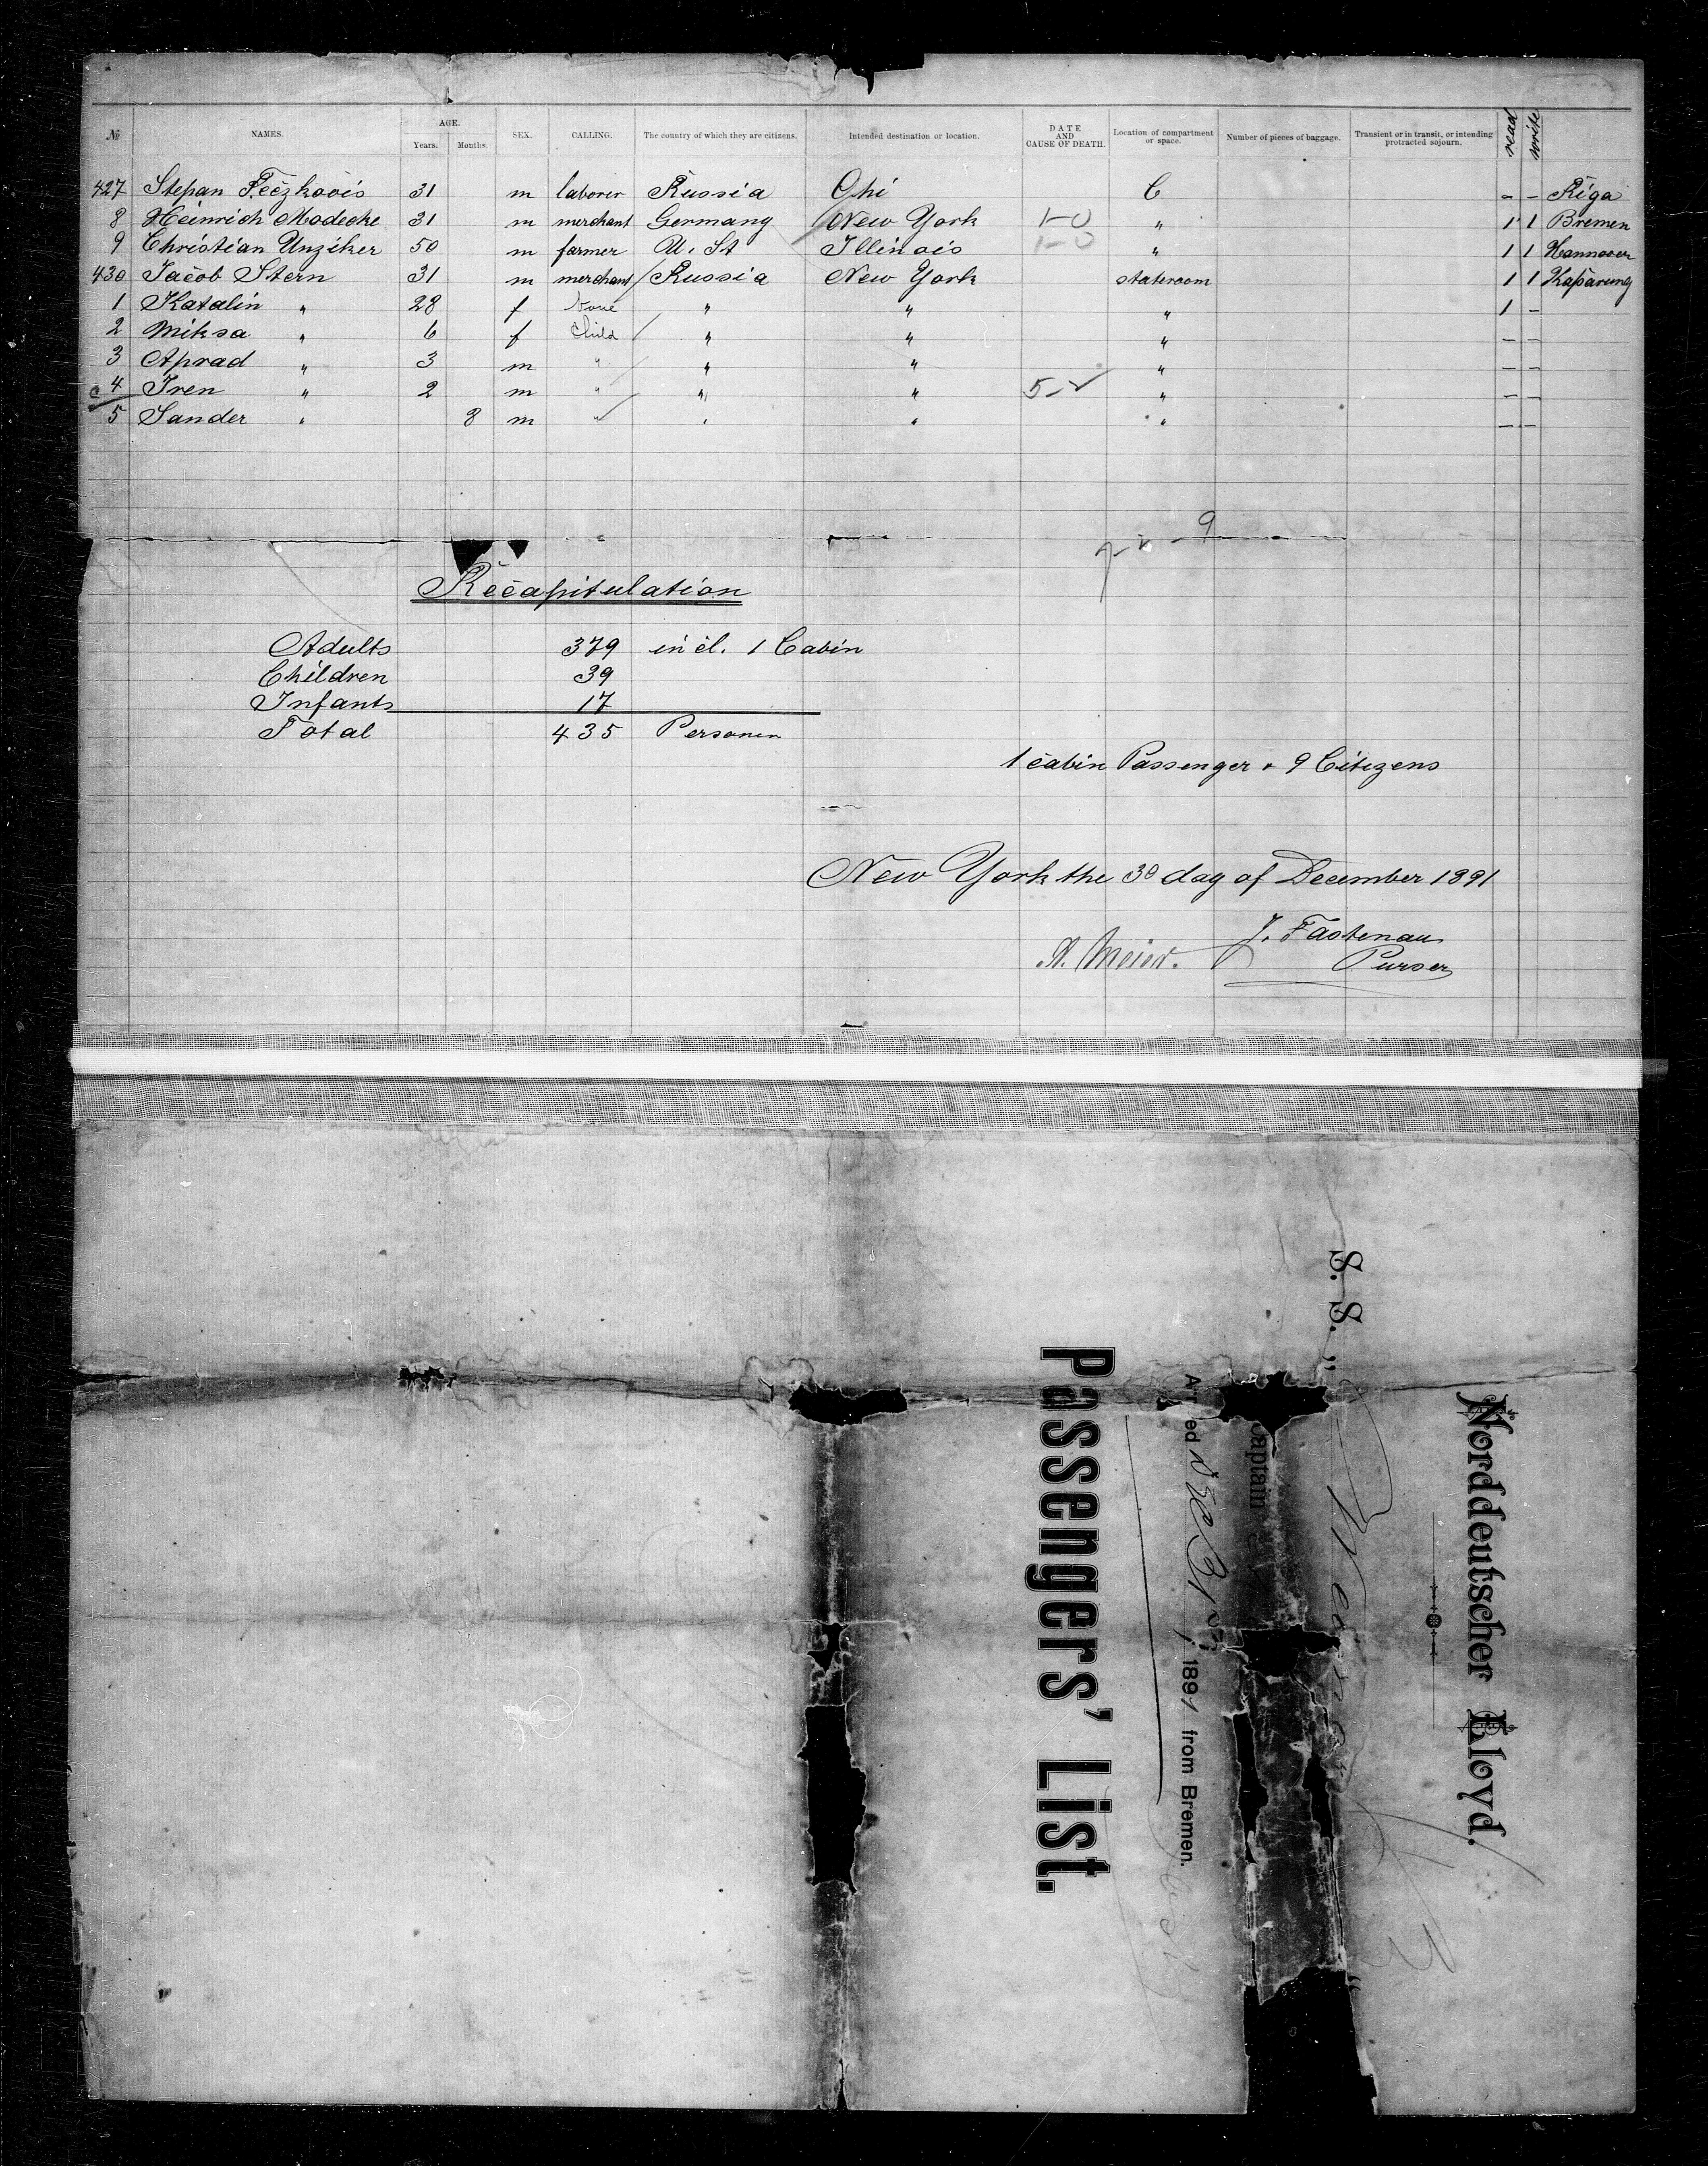 № NAMES. AGE. Years. Months. SEX. CALLING. The country of which they are citizens. Intended destination or location. DATE AND CAUSE OF DEATH. Location of compartment or space. Number of pieces of baggage. Transient or in transit, or intending protracted sojourn. read write
427 Stepan 31 m laborer Russia Ohi C - - Riga
8 Heinrich Modecke 31 m merchant Germany New York 1-0 " 1 1 Bremen
9 Christian Unziker 50 m farmer U. St Illinois 1-0 " 1 1 Hannover
430 Jacob Stern 31 m merchant Russia New York stateroom 1 1
1 Katalin " 28 f None " " " 1 -
2 Miksa " 6 f Child " " " - -
3 Aprad " 3 m " " " " - -
4 Iren " 2 m " " " 5- " - -
5 Sander " 8 m " " " " - -
9
Recapitulation
Adults 379 incl. 1 Cabin
Children 39
Infants 17
Total 435 Personen
1 cabin Passenger + 9 Citizens
New York the 30 day of December 1891
J. Fastenau
A. Meier. Purser
Norddeutscher Lloyd.
S. S. "
Captain
Arr ed Dec 31st, 1891 from Bremen.
Passengers' List.